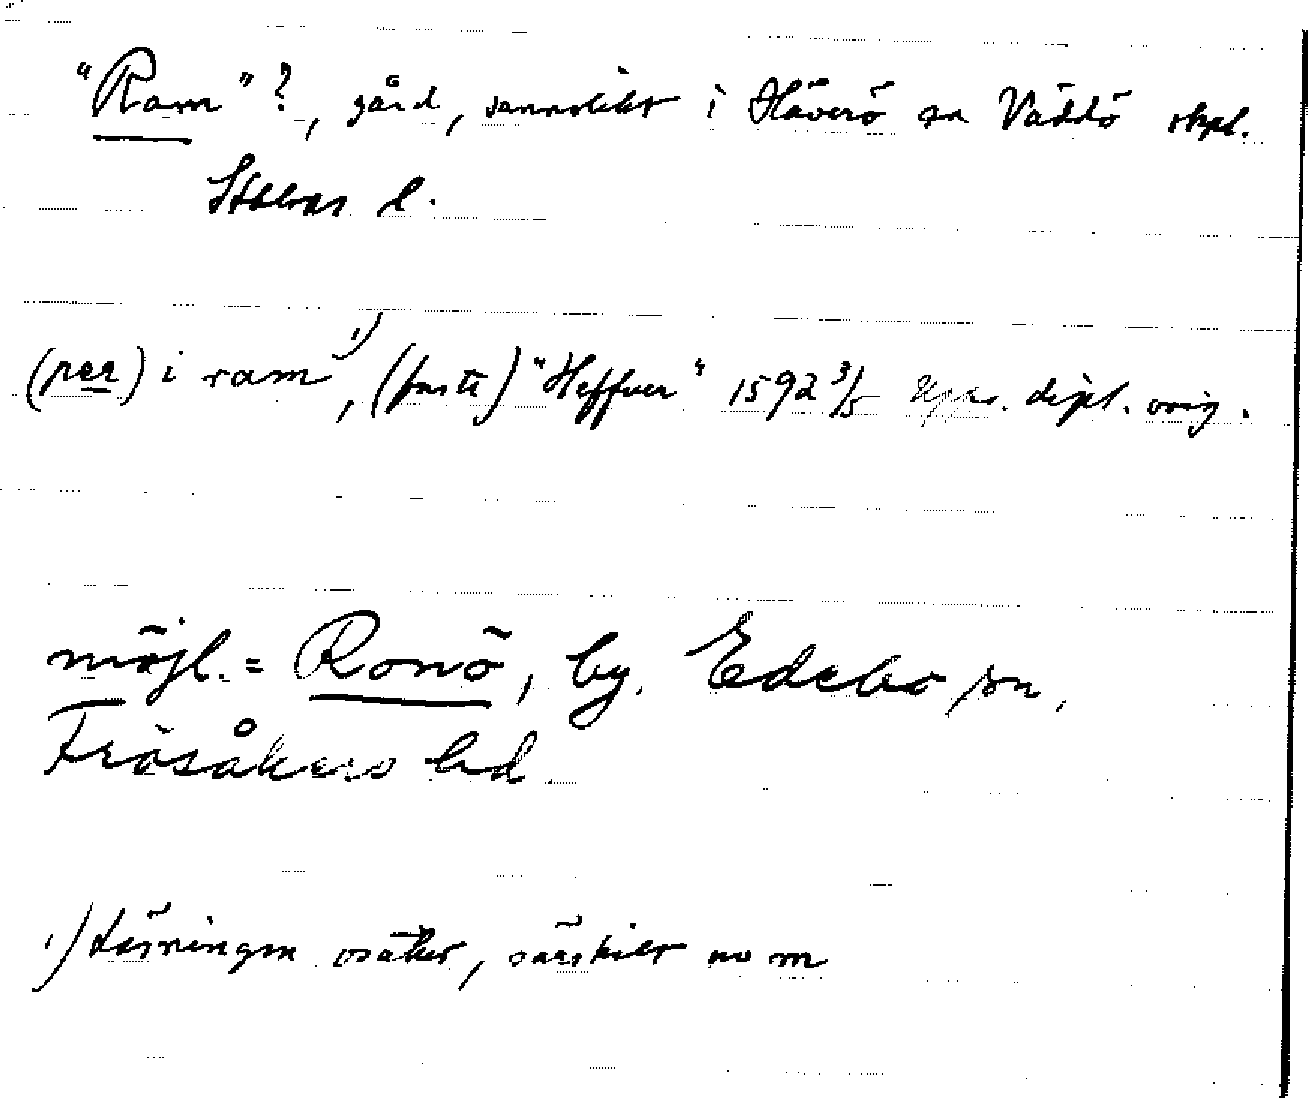 "Ram"?, gård, sannolikt i Häverö sn Väddö skpl.
Sthlms l.
(per) i ram ¹⁾, (fasti) "Heffuer" 1592 3/5 Upps. dipl. orig.
möjl. = Ronö, by, Edebo sn,
Frösåkers hd
¹⁾ Läsningen osäker, särskilt av m